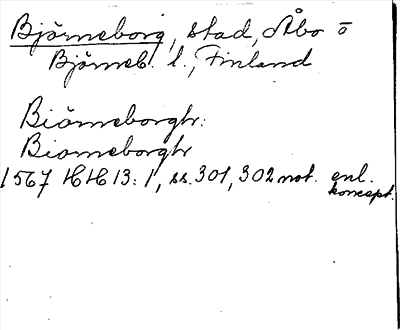 Björneborg, stad, Åbo o
Björneb. l., Finland
Biörneborgh:
Biorneborgh
1567 HH 13:1, ss. 301, 302 not. enl. koncept.